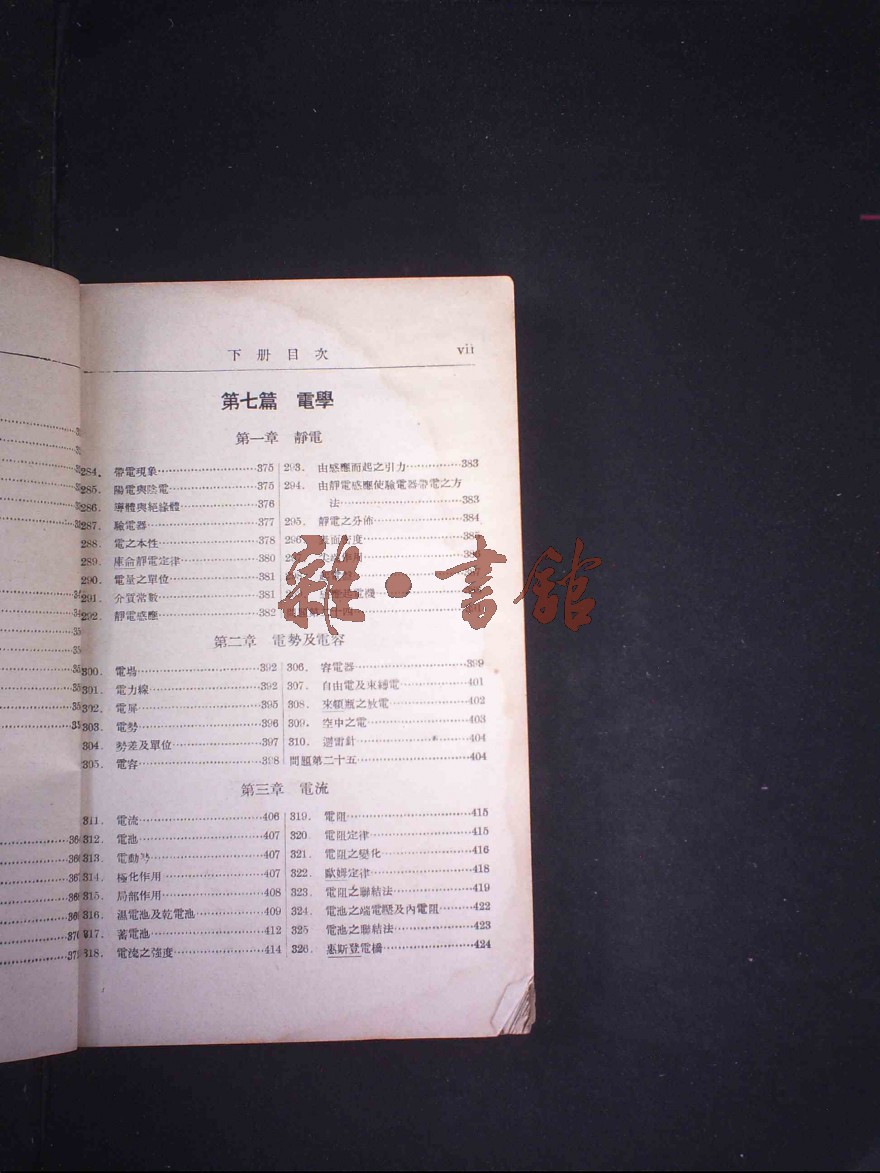 下册目次 vii
第七篇 電學
第一章 靜電
284. 帶電現象 375
285. 陽電與陰電 375
286. 導體與絕緣體 376
287. 驗電器 377
288. 電之本性 378
289. 庫侖靜電定律 380
290. 電量之單位 381
291. 介質常數 381
292. 靜電感應 382
293. 由感應而起之引力 383
294. 由靜電感應使驗電器帶電之方
法 383
295. 靜電之分佈 384
296. 表面密度 385
雜·書館
第二章 電勢及電容
300. 電場 392
301. 電力線 392
302. 電屏 395
303. 電勢 396
304. 勢差及單位 397
305. 電容 398
306. 容電器 399
307. 自由電及束縛電 401
308. 來頓瓶之放電 402
309. 空中之電 403
310. 避雷針 404
問題第二十五 404
第三章 電流
311. 電流 406
312. 電池 407
313. 電動勢 407
314. 極化作用 407
315. 局部作用 408
316. 濕電池及乾電池 409
317. 蓄電池 412
318. 電流之強度 414
319. 電阻 415
320. 電阻定律 415
321. 電阻之變化 416
322. 歐姆定律 418
323. 電阻之聯結法 419
324. 電池之端電壓及內電阻 422
325 電池之聯結法 423
326. 惠斯登電橋 424